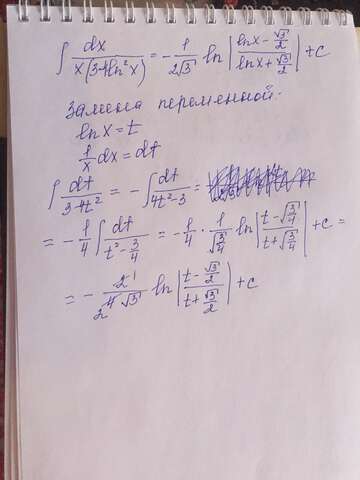 ∫ dx / x(3-4ln²x) = - 1/2√3 ln | (lnx - √3/2) / (lnx + √3/2) | + c
Замена переменной:
lnx = t
1/x dx = dt
∫ dt / 3-4t² = - ∫ dt / 4t²-3 =
= - 1/4 ∫ dt / t² - 3/4 = - 1/4 · 1/√3/4 ln | (t - √3/4) / (t + √3/4) | + c =
= - 2 1 / 2 4 √3 ln | (t - √3/2) / (t + √3/2) | + c